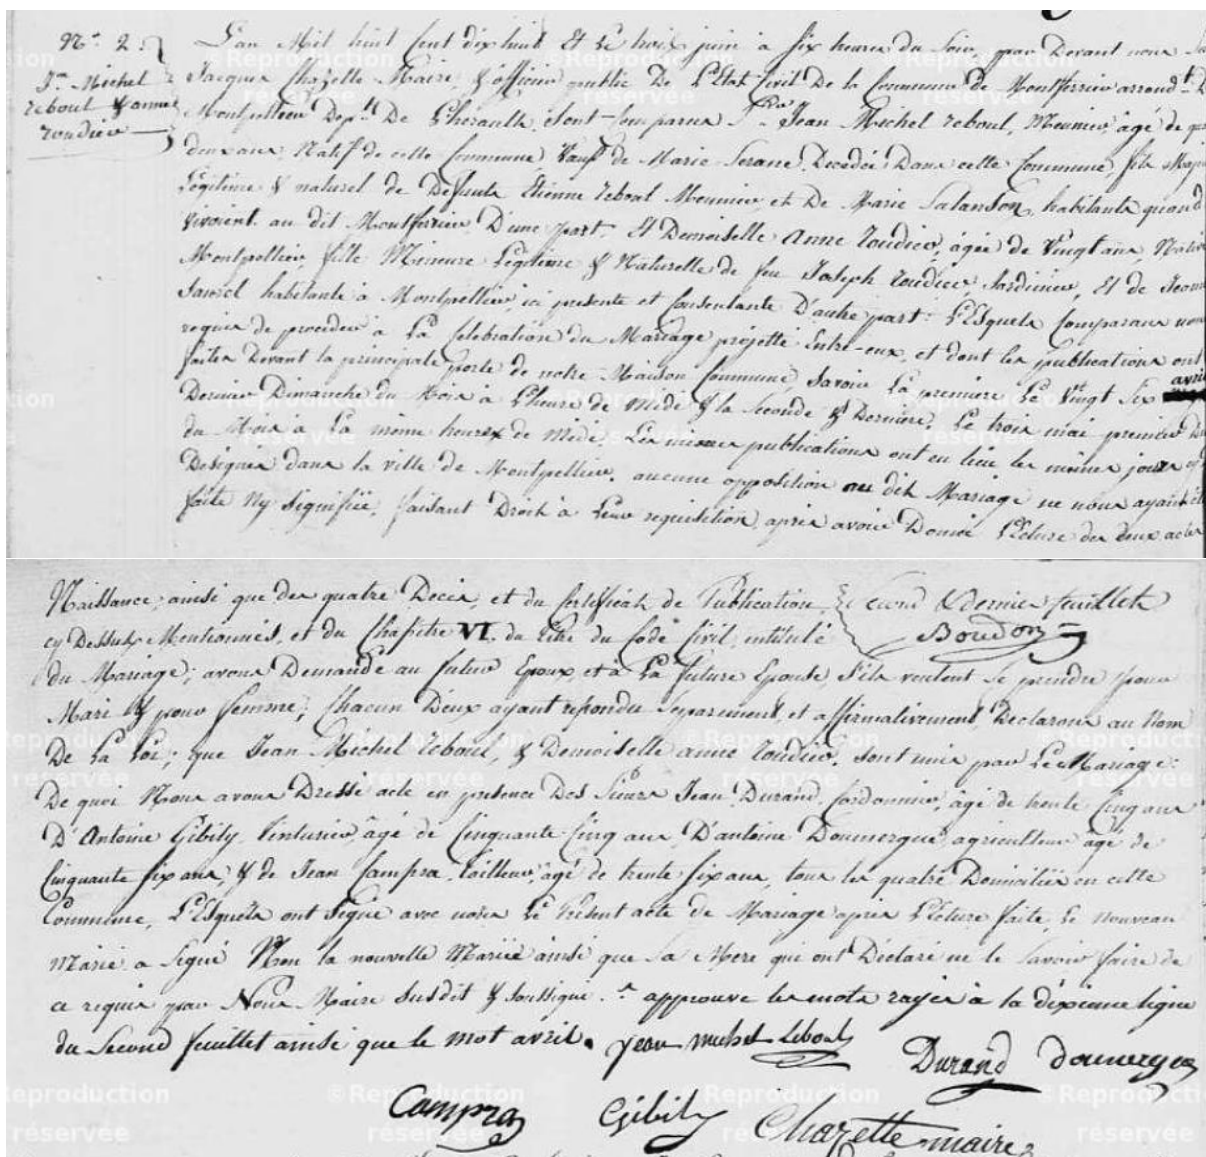 N°. 2.
Jn. Michel
reboul & anne
roudier
L'an Mil huit Cent dix huit Et Le trois juin à six heures du Soir, par Devant nous
Jacques Chazette Maire, & officier public De L'Etat Civil De la Commune de Montferrier arrondt. D
Montpellier Depnt. De L'herault, Sont Comparus Sr. Jean Michel reboul, Meunier, âgé de
deux ans, Natif de cette Commune Veuf de Marie Serane, Decedée Dans cette Commune, fils Maj
Légitime & naturel de Defunts Etienne reboul Meunier, et De Marie Salanson, habitants quand
vivoient au dit Montferrier, D'une part. Et Demoiselle anne roudier, agée de Vingt ans, Native
Montpellier, fille Mineure Légitime & Naturelle de feu Joseph roudier, Jardinier, Et de Jeanne
habitante à Montpellier, ici presente et Consentante D'autre part. L'Esquels Comparans nous
requis de proceder à La Celebration du Mariage projetté Entre-eux, et dont les publications ont
faites Devant la principale porte de notre Maison Commune, Savoir La premiere Le Vingt Six avril
Dernier Dimanche du Mois à L'heure de Midi & la Seconde & Derniere, Le trois mai premier Di
du Mois à La même heure de Midi, Les mêmes publications ont eu lieu les mêmes jours cy
Designés dans la ville de Montpellier, aucune opposition au dit Mariage ne nous ayant été
faite Ny Signifiée, faisant Droit à Leur requisition, après avoir Donné L'Ecture des deux actes
Naissance; ainsi que des quatre Decès, et du Certificat de Publication, Second & dernier feuillet
cy Dessus Mentionnés, et du Chapitre VI. du titre du Code Civil, intitulé Boudon
du Mariage; avons Demandé au futur Epoux, et à La future Epouse, S'ils veulent se prendre pour
Mari & pour femme; Chacun D'eux ayant repondu Separement, et affirmativement, Declarons au Nom
De La Loi; que Jean Michel reboul, & Demoiselle anne roudier, Sont unis par Le Mariage:
De quoi Nous avons Dressé acte en presence Des Sieurs Jean Durand, Cordonnier, âgé de trente Cinq ans
D'Antoine Gibily, âgé de Cinquante Cinq ans, D'antoine Doumergue, agriculteur âgé de
Cinquante six ans, & de Jean Campra, tailleur, âgé de trente six ans, tous les quatre Domiciliés en cette
Commune, L'Esquels ont Signé avec nous Le Présent acte de Mariage après L'Ecture faite, Le nouveau
Marié a Signé Non la nouvelle Mariée ainsi que Sa Mere qui ont Déclaré ne le Savoir faire de
ce requis par Nous Maire Susdit & Soussigné. approuvé les mots rayés à la dixieme ligne
du Second feuillet ainsi que le mot avril. jean michel Reboul
Durand doumergue
Campra Gibily Chazette maire
© Reproduction réservée